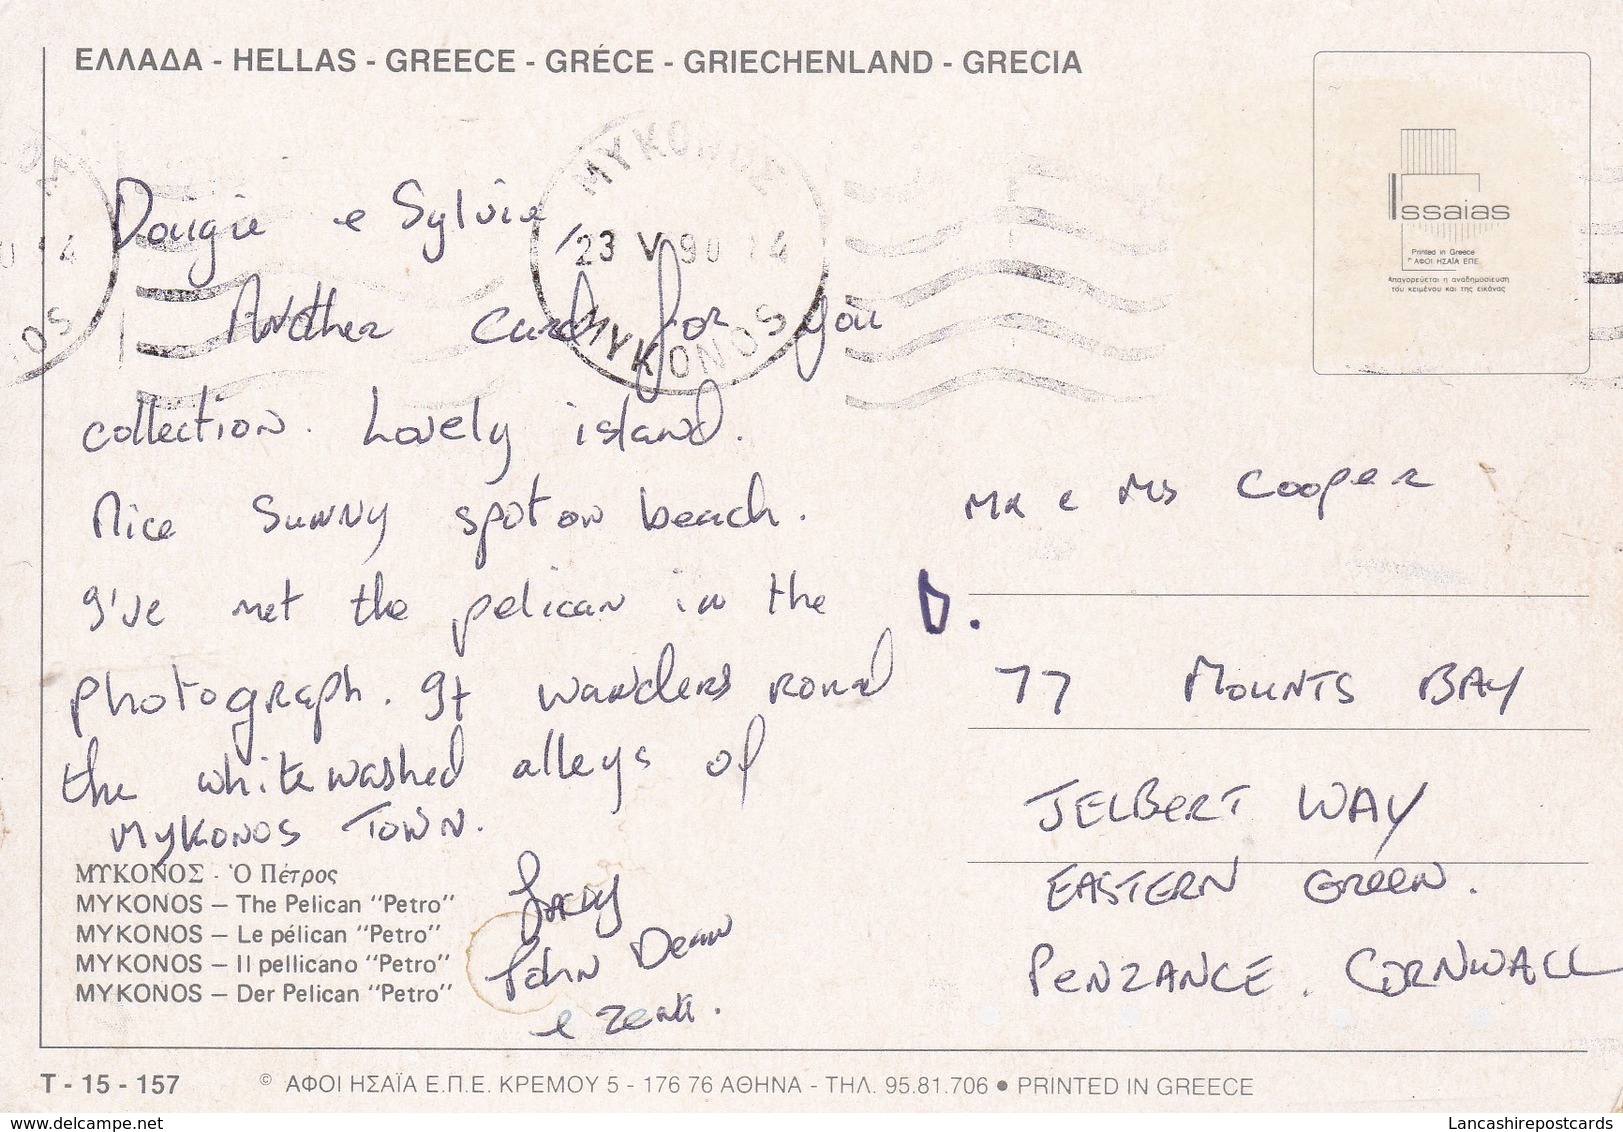 ΕΛΛΑΔΑ - HELLAS - GREECE - GRÉCE - GRIECHENLAND - GRECIA
MYKONOS
23 V 90 14
ΜΥΚΟΝΟΣ
Dougie e Sylvie,
Another card for you
collection. Lovely island.
Nice sunny spot on beach.
I've met the pelican in the
photograph. It wanders round
the whitewashed alleys of
MYKONOS TOWN.
John Dean
e
ΜΥΚΟΝΟΣ - Ὁ Πέτρος
MYKONOS – The Pelican "Petro"
MYKONOS – Le pélican "Petro"
MYKONOS – Il pellicano "Petro"
MYKONOS – Der Pelican "Petro"
Issaias
Printed in Greece
ΑΦΟΙ ΗΣΑΪΑ ΕΠΕ
Απαγορεύεται η αναδημοσίευση
του κειμένου και της εικόνας
MR e Ms Cooper
D.
77 MOUNTS BAY
JELBERT WAY
EASTERN GREEN.
PENZANCE. CORNWALL
T - 15 - 157
© ΑΦΟΙ ΗΣΑΪΑ Ε.Π.Ε. ΚΡΕΜΟΥ 5 - 176 76 ΑΘΗΝΑ - ΤΗΛ. 95.81.706 ● PRINTED IN GREECE
delcampe.net
Lancashirepostcards